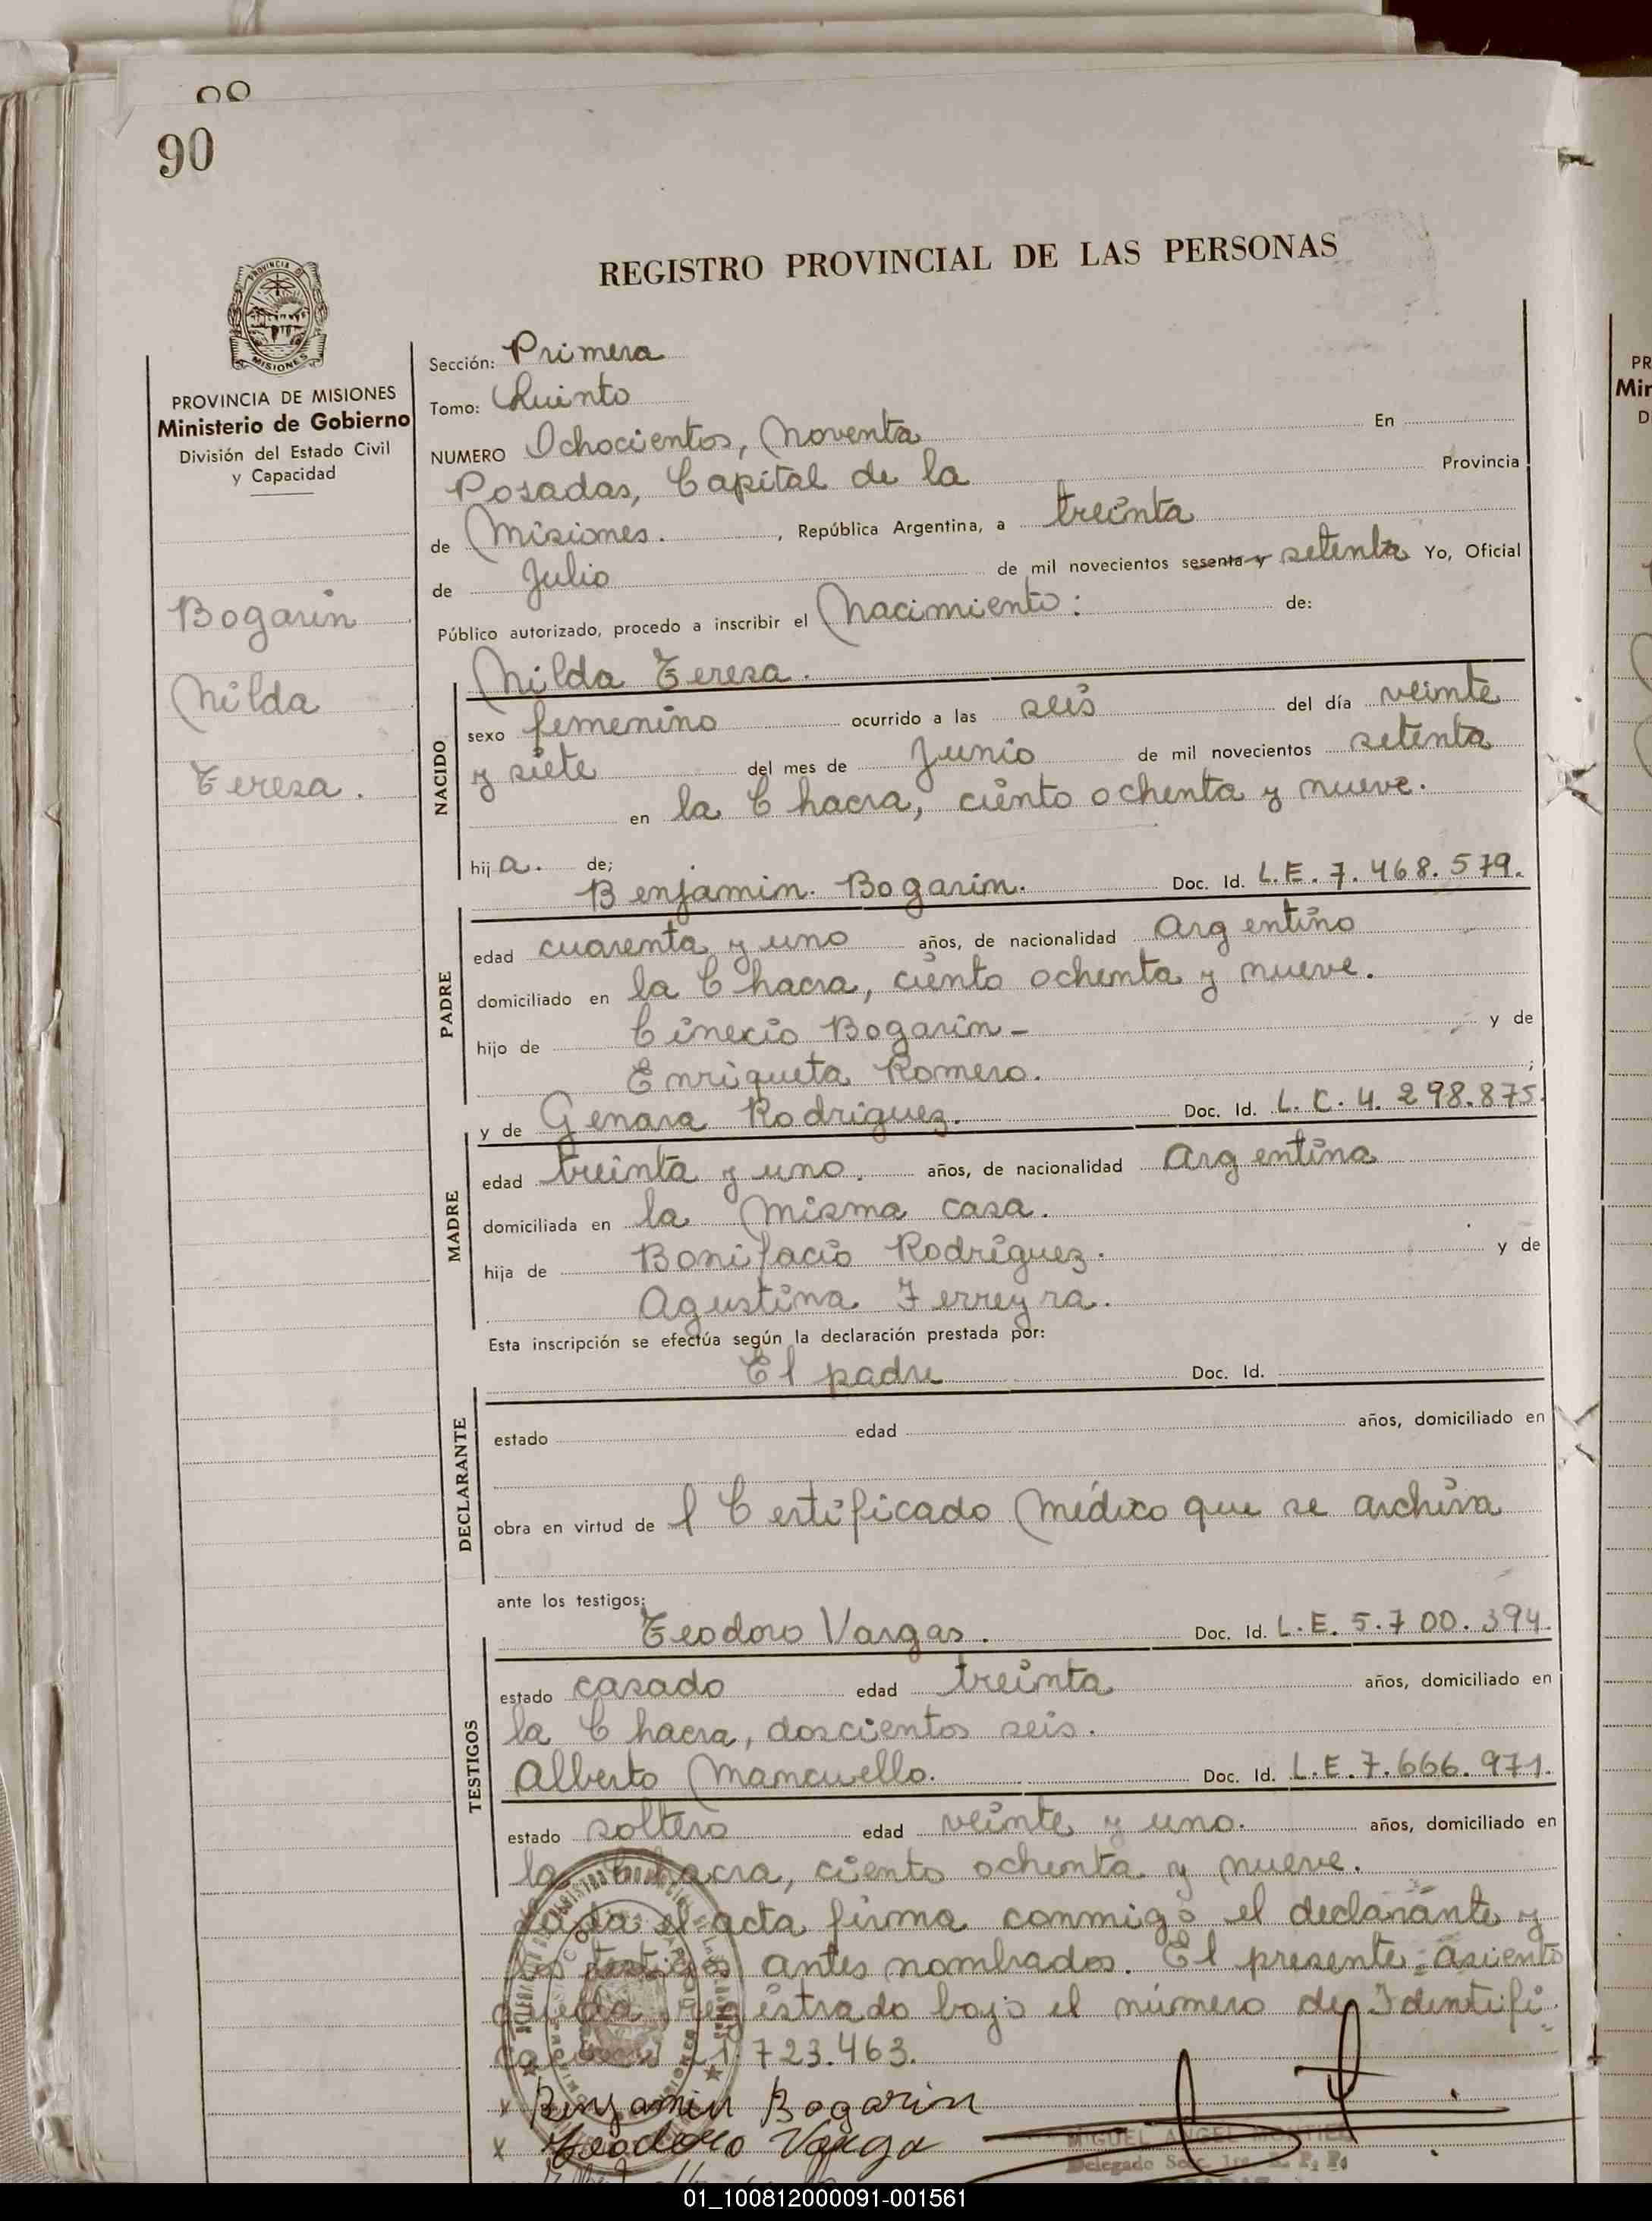 90
REGISTRO PROVINCIAL DE LAS PERSONAS
PROVINCIA DE
MISIONES
PROVINCIA DE MISIONES
Ministerio de Gobierno
División del Estado Civil
y Capacidad
Bogarin
Nilda
Teresa.
Sección: Primera
Tomo: Quinto
NUMERO Ochocientos, Noventa En
Posadas, Capital de la Provincia
de Misiones. , República Argentina, a treinta
de Julio de mil novecientos sesenta y setenta Yo, Oficial
Público autorizado, procedo a inscribir el Nacimiento: de:
Nilda Teresa.
NACIDO
sexo femenino ocurrido a las seis del día veinte
y siete del mes de Junio de mil novecientos setenta
en la Chacra, ciento ochenta y nueve.
hija. de;
Benjamin. Bogarin. Doc. Id. L.E. 7.468.579.
PADRE
edad cuarenta y uno años, de nacionalidad Argentino
domiciliado en la Chacra, ciento ochenta y nueve.
hijo de Cinecio Bogarin - y de
Enriqueta Romero. ;
y de Genara Rodriguez. Doc. Id. L.C. 4.298.875.
MADRE
edad treinta y uno. años, de nacionalidad Argentina
domiciliada en la misma casa.
hija de Bonifacio Rodríguez. y de
Agustina Ferreyra.
Esta inscripción se efectúa según la declaración prestada por:
El padre Doc. Id.
DECLARANTE
estado edad años, domiciliado en
obra en virtud de l Certificado Médico que se archiva
ante los testigos:
Teodoro Vargas. Doc. Id. L.E. 5.700.394.
TESTIGOS
estado casado edad treinta años, domiciliado en
la Chacra, doscientos seis.
Alberto Mancuello. Doc. Id. L.E. 7.666.971.
estado soltero edad veinte y uno. años, domiciliado en
la Chacra, ciento ochenta y nueve.
el acta firma conmigo el declarante y
los testigos antes nombrados. El presente asiento
queda registrado bajo el número de Identifi
cación 21.723.463.
x Benjamin Bogarin
x Teodoro Varga
MIGUEL ANGEL
Delegado Secc. 1ra. R. P. P.
01_100812000091-001561